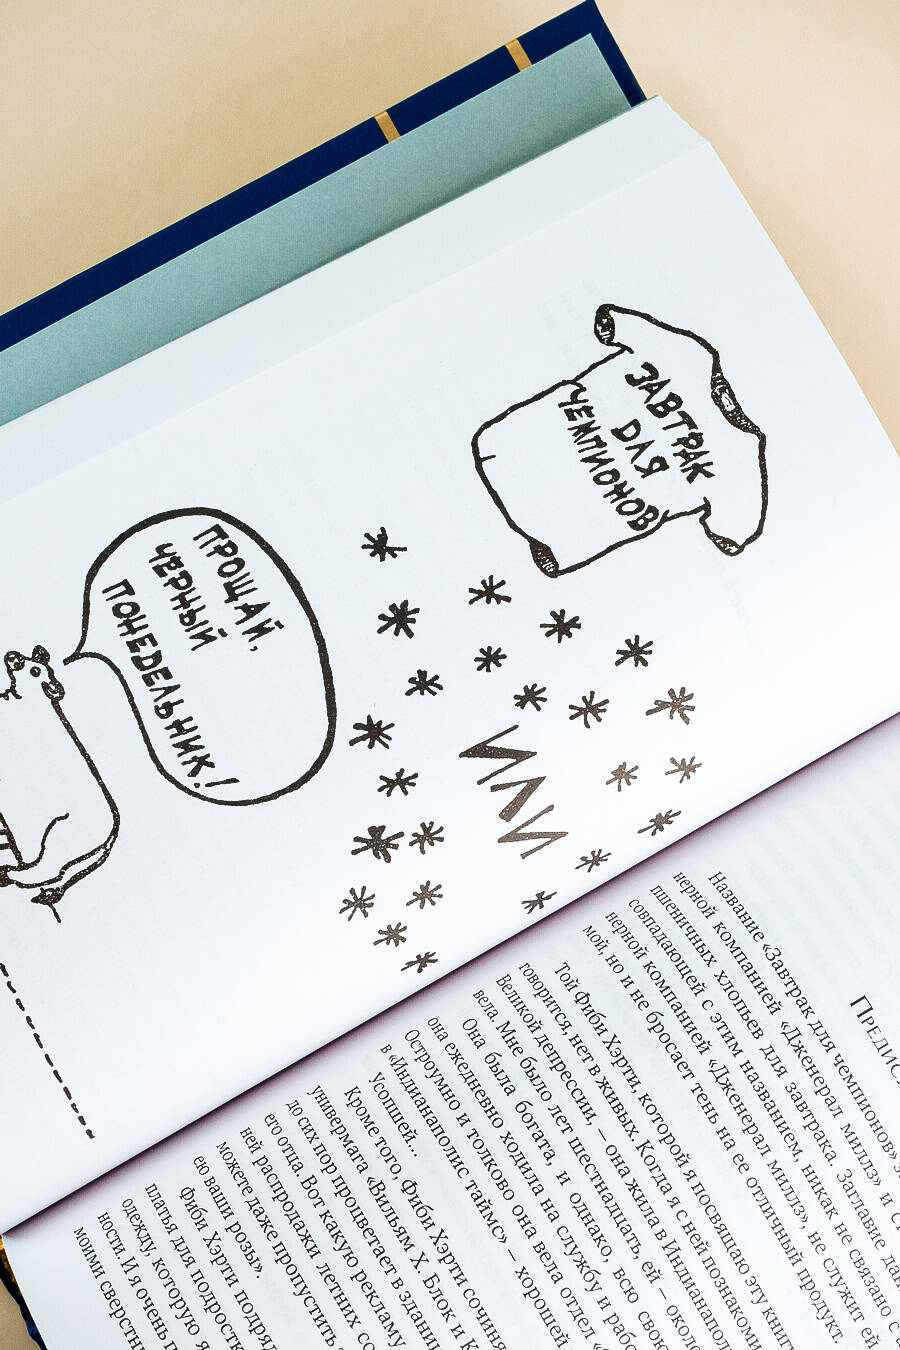 ЗАВТРАК
ДЛЯ
ЧЕМПИОНОВ
ИЛИ
ПРОЩАЙ,
ЧЕРНЫЙ
ПОНЕДЕЛЬНИК!
Название «Завтрак для чемпионов»
нерной компанией «Дженерал миллз» и
пшеничных хлопьев для завтрака. Заглавие
совпадающей с этим названием, никак не связано с
нерной компанией «Дженерал миллз», не служит ей
мой, но и не бросает тень на ее отличный продукт.
Той Фиби Хэрти, которой я посвящаю эту
говорится, нет в живых. Когда я с ней
Великой депрессии, – она жила в
вела. Мне было лет шестнадцать, ей –
Она была богата, и однако, всю
она ежедневно ходила на службу и
Остроумно и толково она вела отдел
в «Индианаполис таймс» – хорошей
усопшей...
Кроме того, Фиби Хэрти
универмага «Вильям Х. Блок и
до сих пор процветает в
его отца. Вот какую рекламу
ней распродажи летних
можете даже пропустить
ею ваши розы».
Фиби Хэрти
платья для
одежду, которую я
ности. И я очень
моими